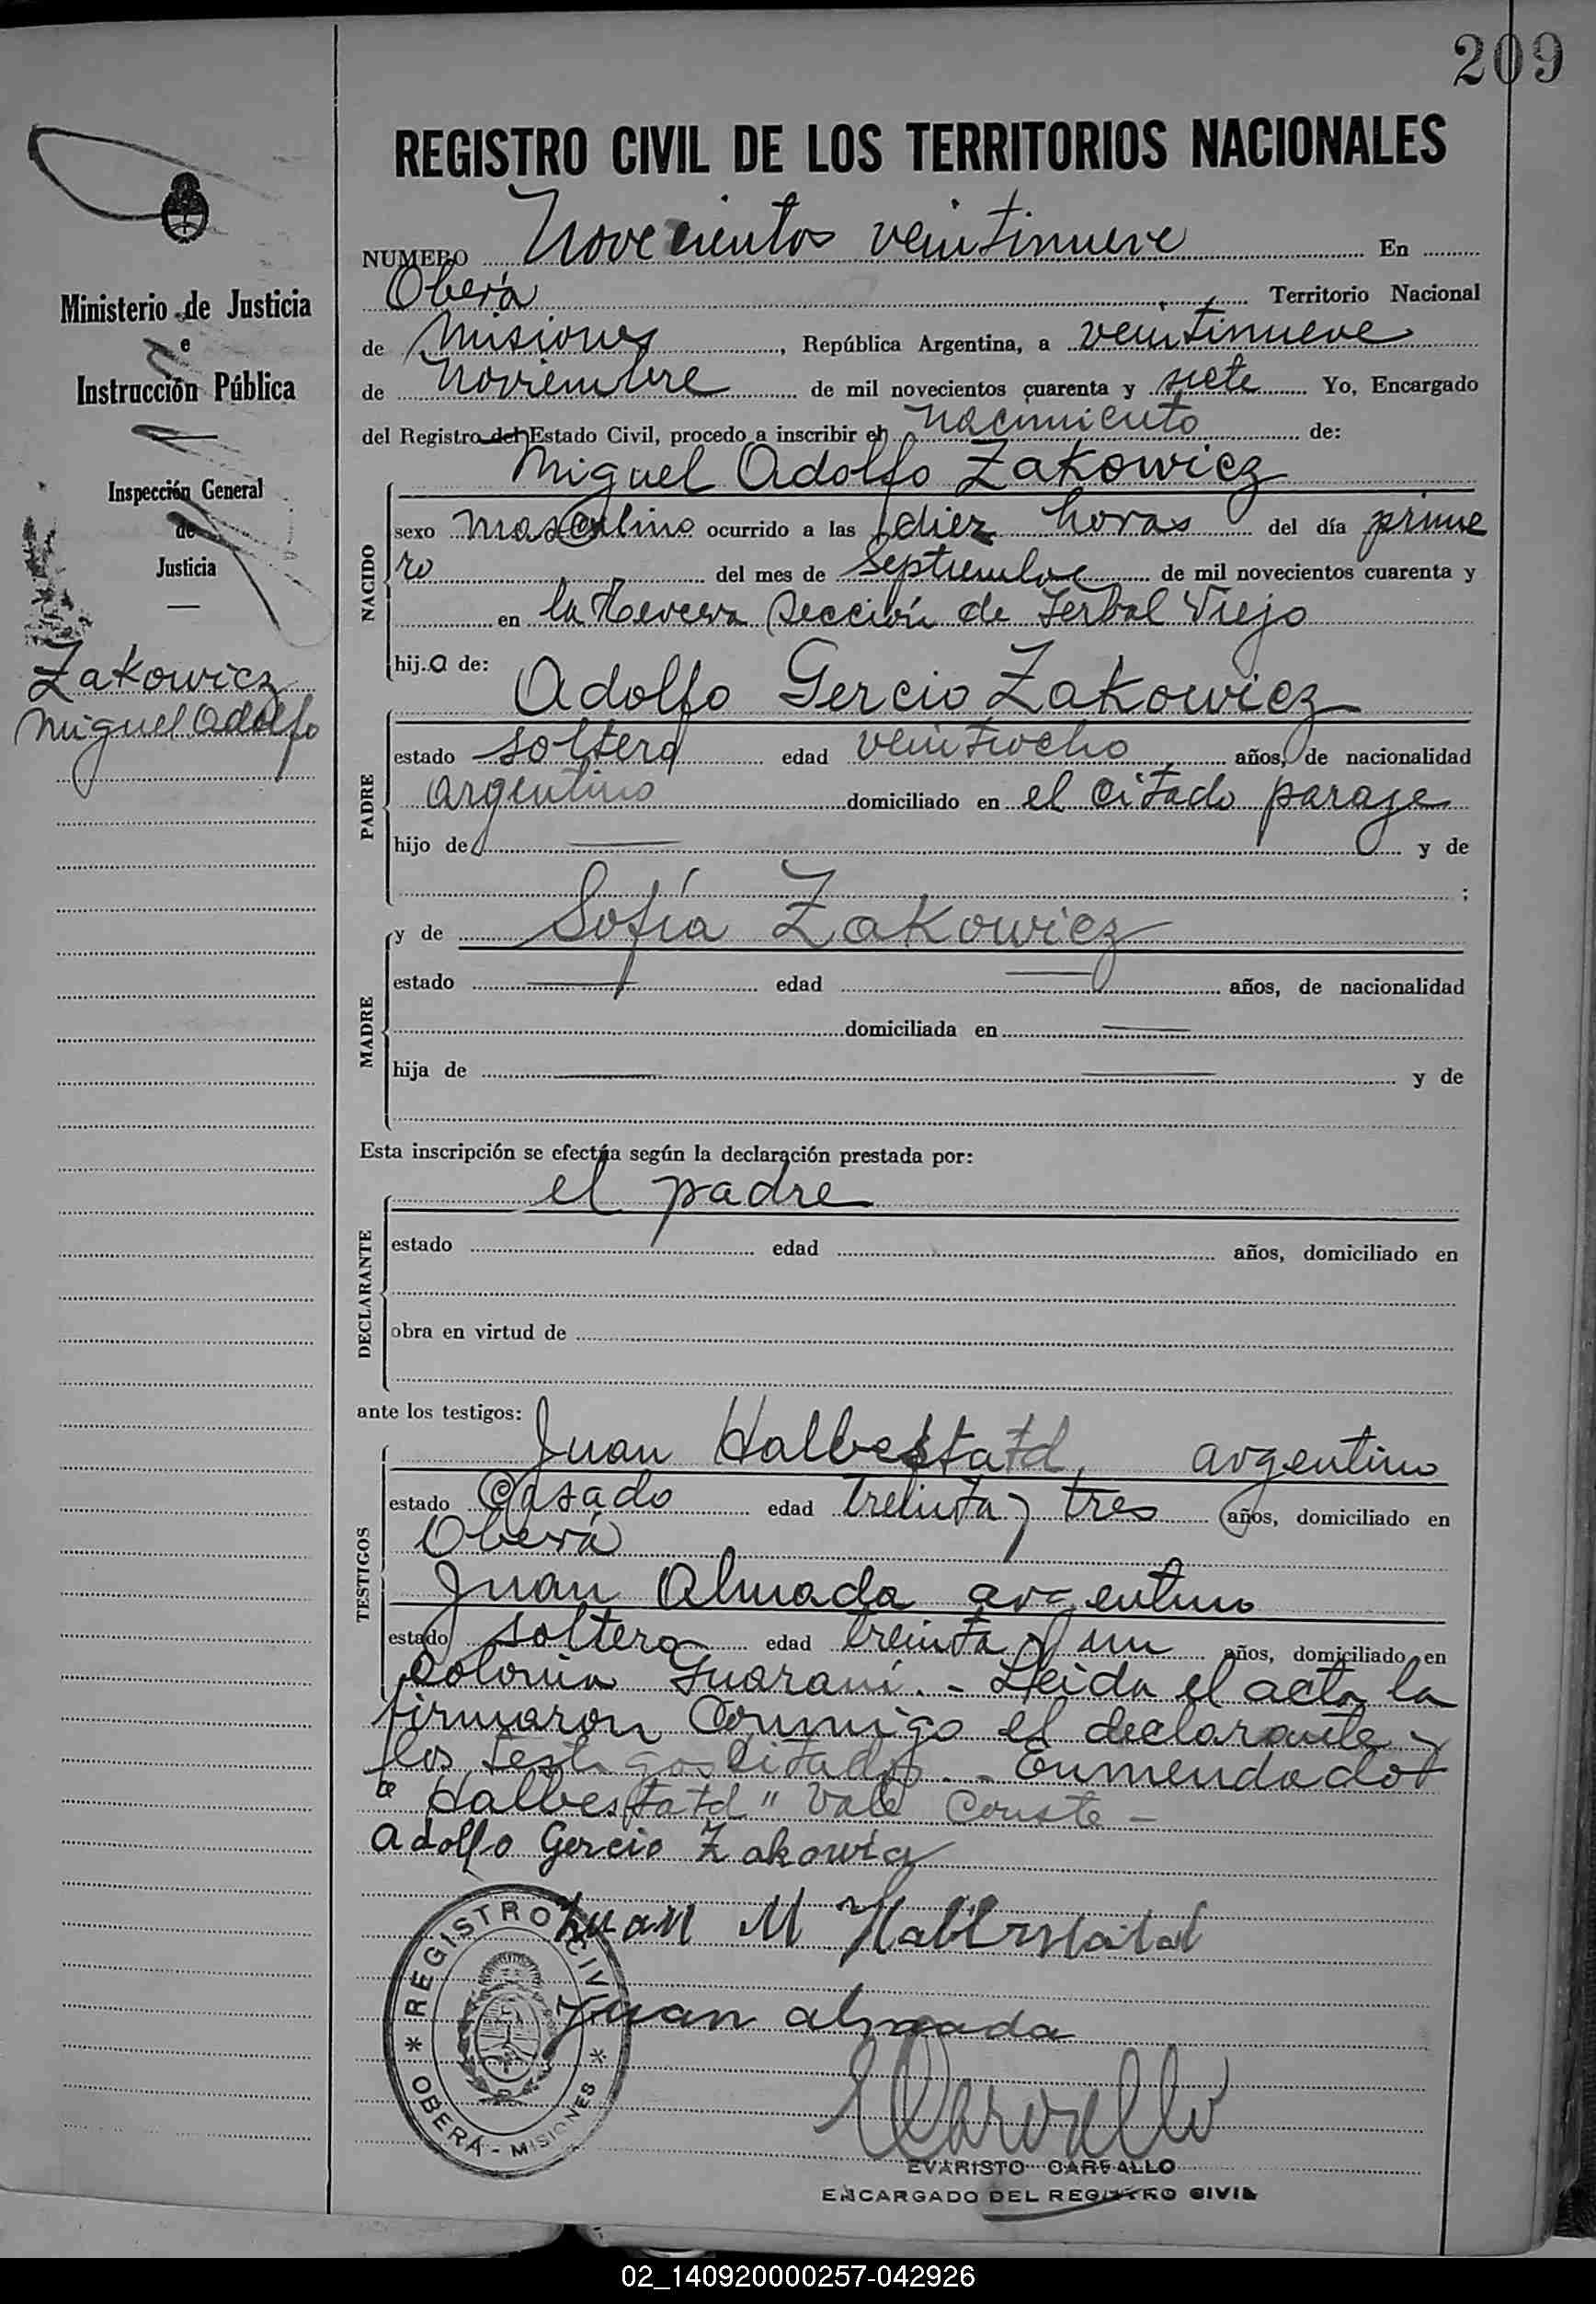 209
REGISTRO CIVIL DE LOS TERRITORIOS NACIONALES
NUMERO Novecientos veintinueve En
Oberá Territorio Nacional
de Misiones, República Argentina, a veintinueve
de Noviembre de mil novecientos cuarenta y siete Yo, Encargado
del Registro del Estado Civil, procedo a inscribir el nacimiento de:
Ministerio de Justicia
e
Instrucción Pública
Inspección General
de
Justicia
Zakowicz
Miguel Adolfo
NACIDO
Miguel Adolfo Zakowicz
sexo masculino ocurrido a las diez horas del día prime
ro del mes de Septiembre de mil novecientos cuarenta y
en la tercera sección de Yerbal Viejo
hij.o de:
PADRE
Adolfo Gercio Zakowicz
estado soltero edad veintiocho años, de nacionalidad
argentino domiciliado en el citado paraje
hijo de — y de
;
MADRE
y de Sofía Zakowicz
estado — edad — años, de nacionalidad
domiciliada en —
hija de — — y de
Esta inscripción se efectúa según la declaración prestada por:
DECLARANTE
el padre
estado edad años, domiciliado en
obra en virtud de
ante los testigos:
TESTIGOS
Juan Halbestatd, argentino
estado casado edad treinta y tres años, domiciliado en
Oberá
Juan Almada argentino
estado soltero edad treinta y un años, domiciliado en
Colonia Guaraní. - Leída el acta la
firmaron conmigo el declarante y
los testigos citados. - Enmendado:
"Halbestatd" Vale Conste -
Adolfo Gercio Zakowicz
Juan M Halberstatd
Juan almada
REGISTRO CIVIL
* OBERÁ - MISIONES *
EVARISTO CARBALLO
ENCARGADO DEL REGISTRO CIVIL
02_140920000257-042926